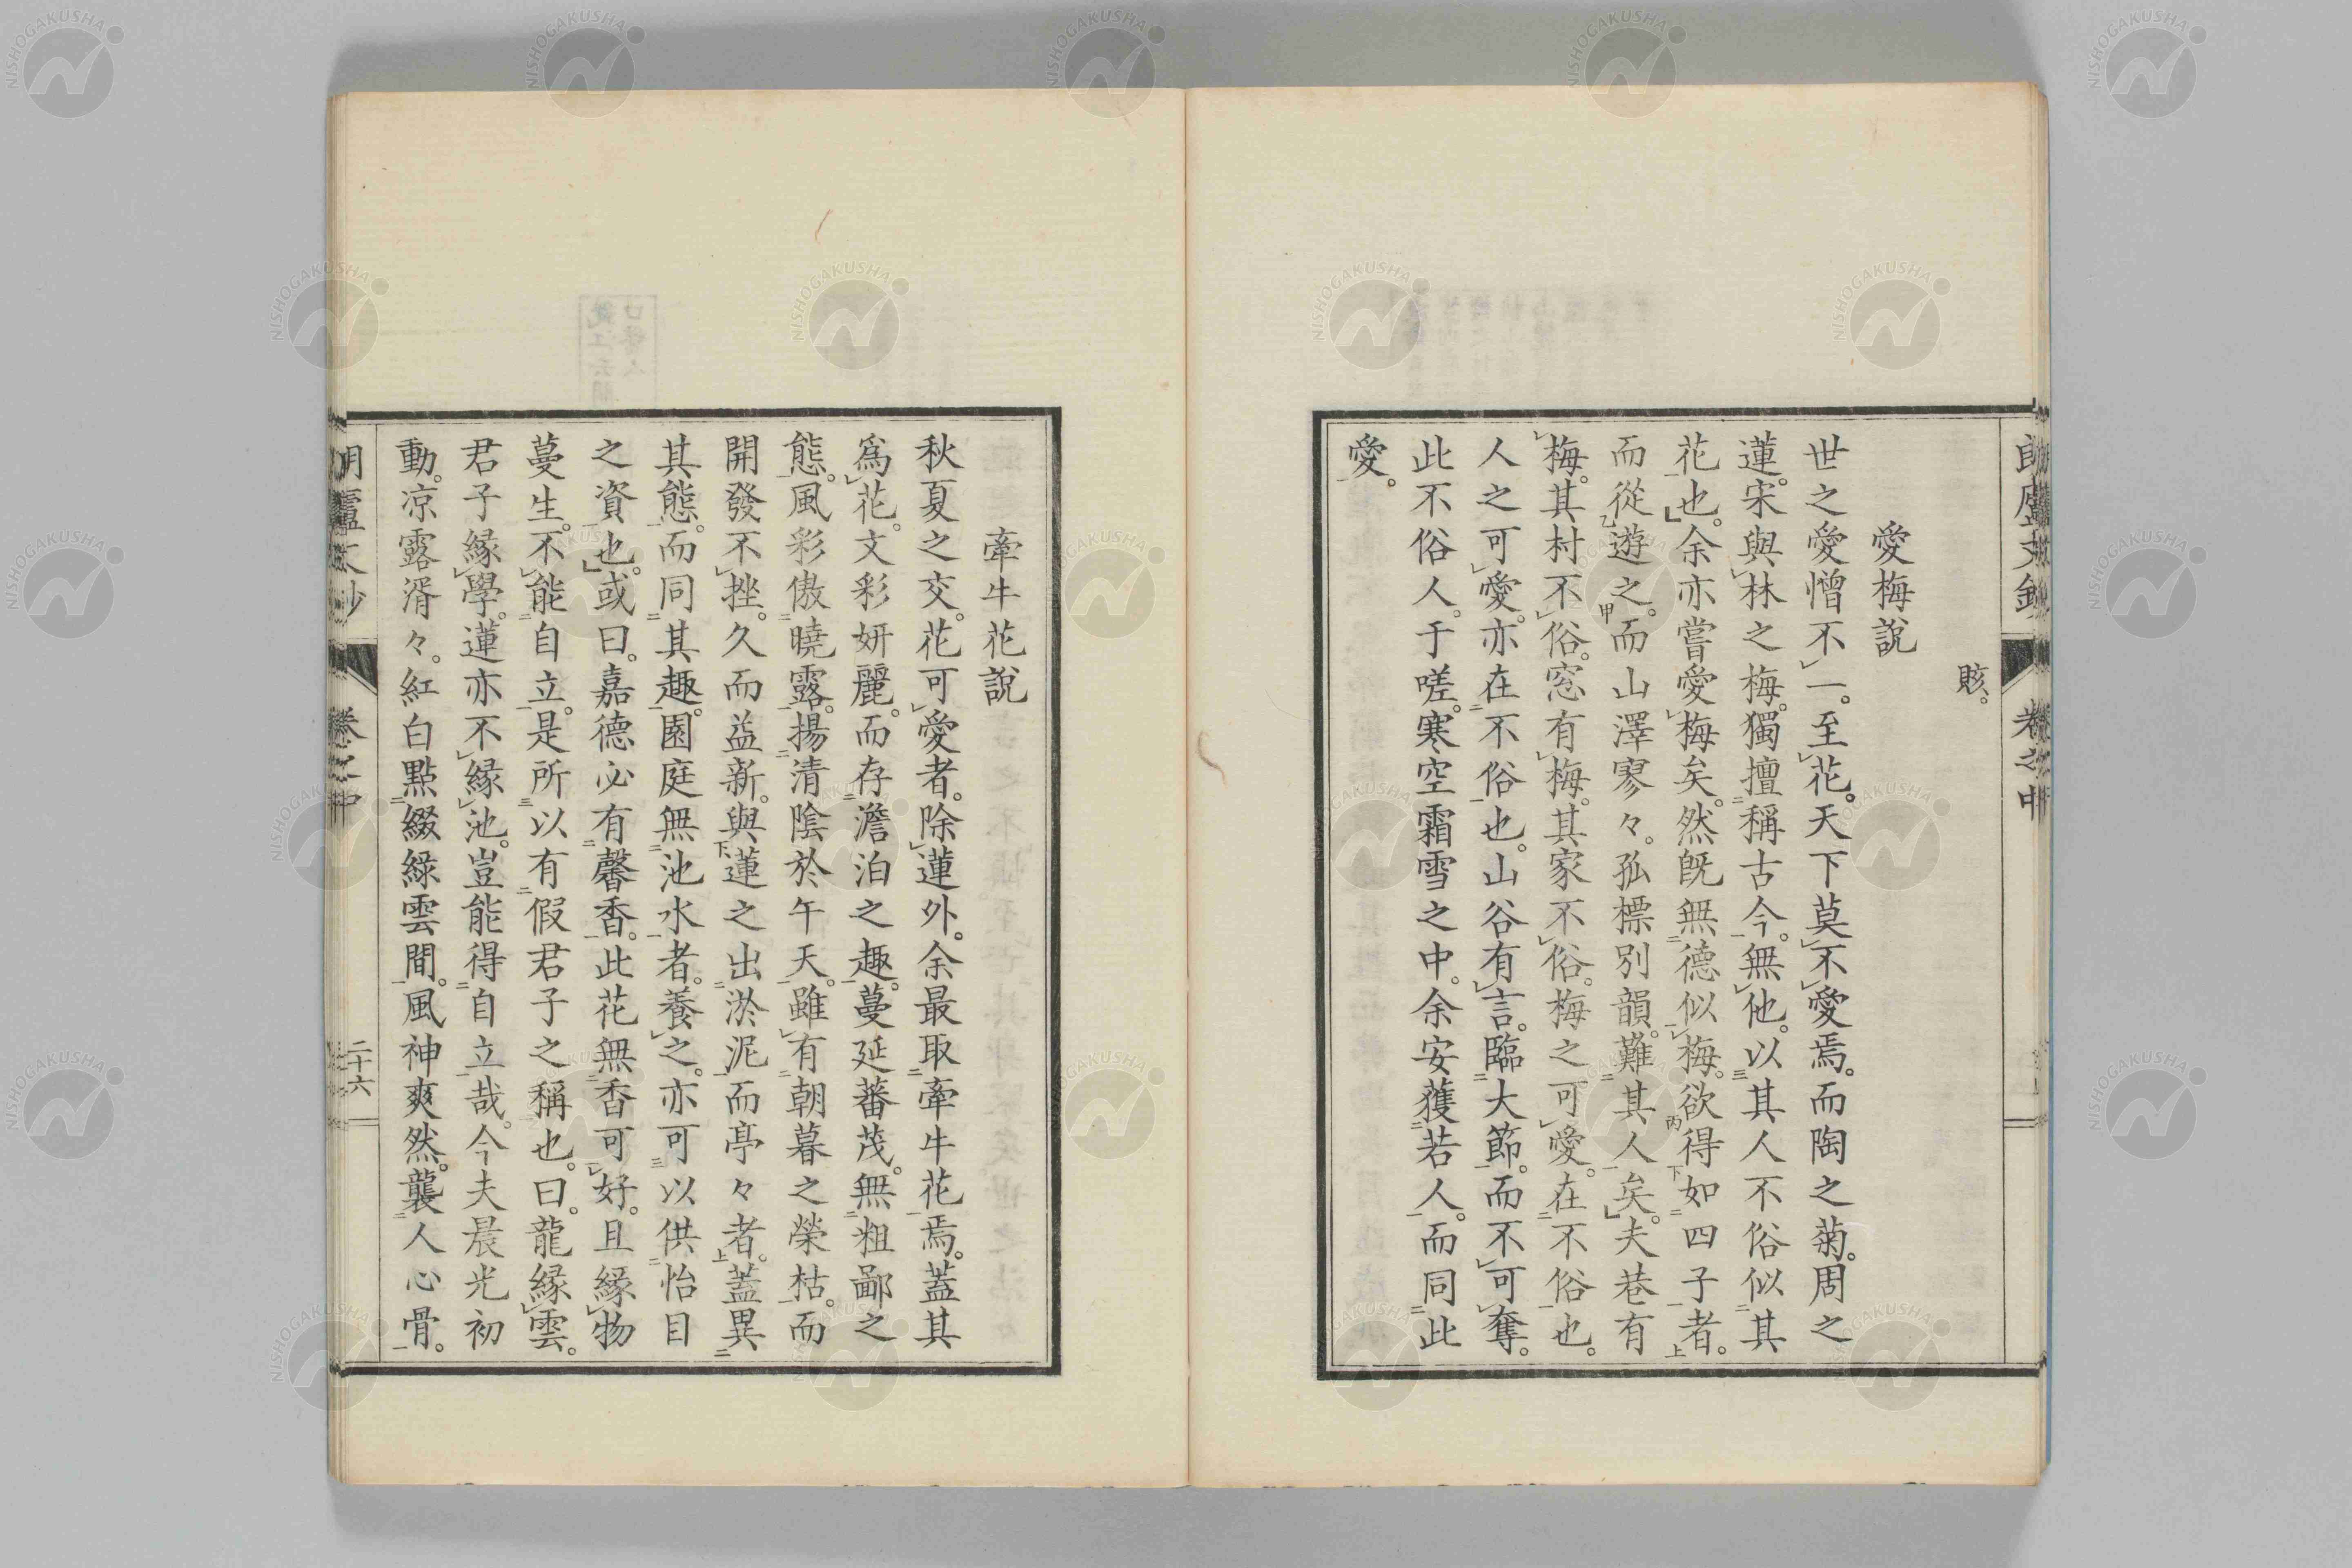 賅。
愛梅說
世之愛憎不一。至花。天下莫不愛焉。而陶之菊。周之
蓮。宋與林之梅。獨擅稱古今。無他。以其人不俗似其
花也。余亦嘗愛梅矣。然既無德似梅。欲得如四子者。
而從遊之。而山澤寥々。孤標別韻。難其人矣。夫巷有
梅。其村不俗。窓有梅。其家不俗。梅之可愛。在不俗也。
人之可愛。亦在不俗也。山谷有言。臨大節。而不可奪。
此不俗人。于嗟。寒空霜雪之中。余安獲若人。而同此
愛。
牽牛花說
秋夏之交。花可愛者。除蓮外。余最取牽牛花焉。蓋其
爲花。文彩妍麗。而存澹泊之趣。蔓延蕃茂。無粗鄙之
態。風彩傲曉露。揚清陰於午天。雖有朝暮之榮枯。而
開發不挫。久而益新。與蓮之出淤泥而亭々者。蓋異
其態。而同其趣。園庭無池水者。養之。亦可以供怡目
之資也。或曰。嘉德必有馨香。此花無香可好。且緣物
蔓生。不能自立。是所以有假君子之稱也。曰。龍緣雲。
君子緣學。蓮亦不緣池。豈能得自立哉。今夫晨光初
動。凉露湑々。紅白點綴綠雲間。風神爽然。襲人心骨。
卷之中
二十六
NISHOGAKUSHA